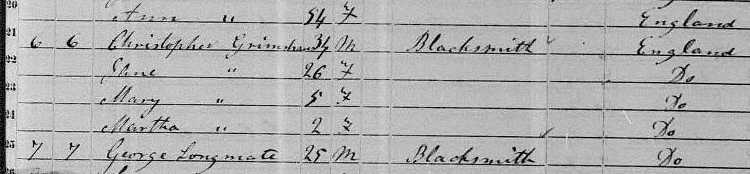 20 Ann " 54 F England
21 6 6 Christopher Grimshaw 34 M Blacksmith England
22 Jane " 26 F Do
23 Mary " 5 F Do
24 Martha " 2 F Do
25 7 7 George Longmate 25 M Blacksmith Do